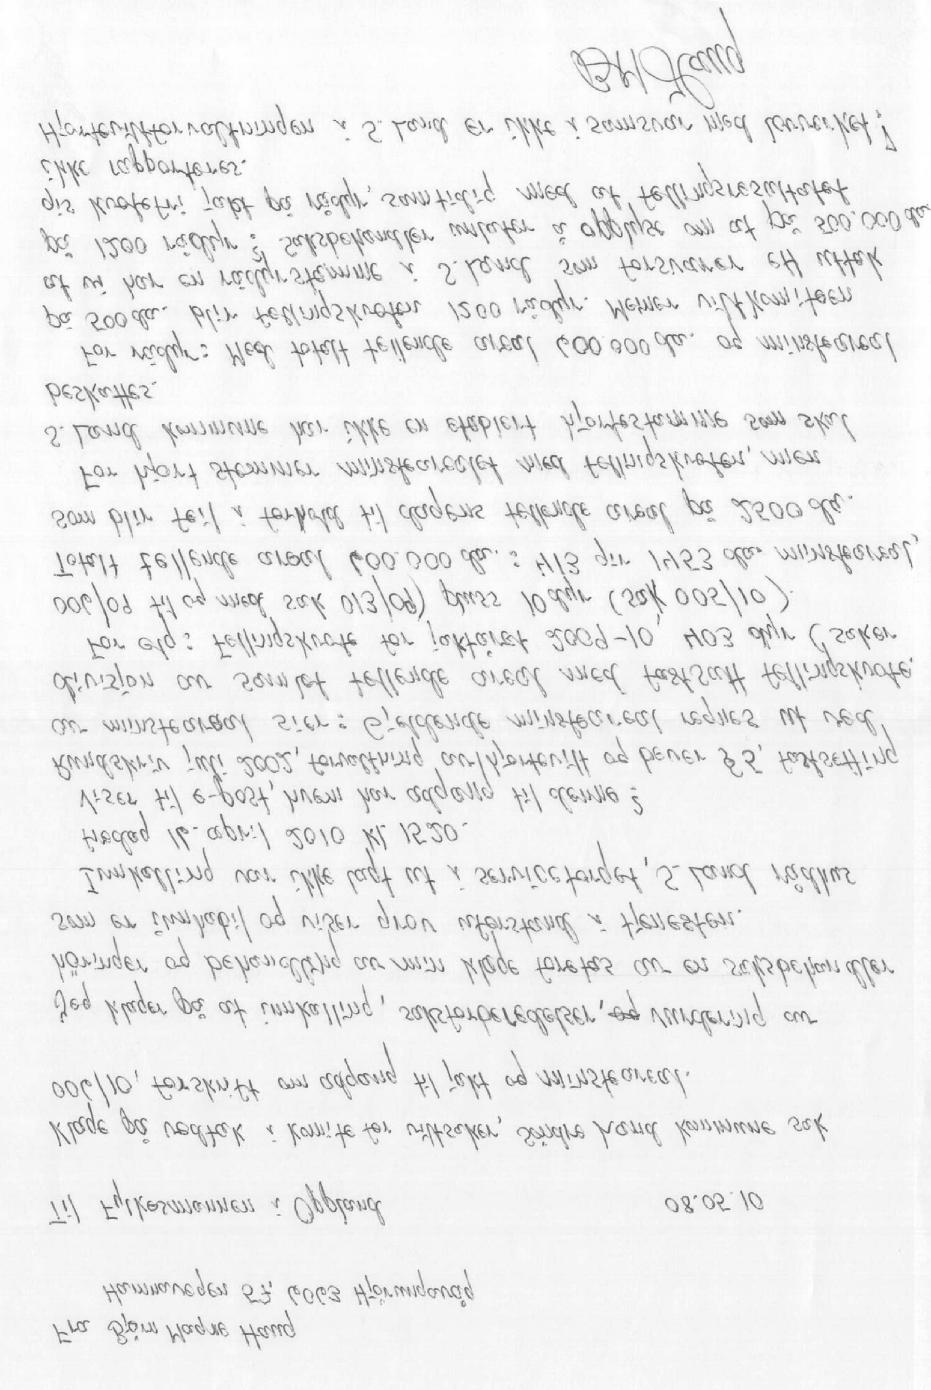 Fra Bjørn Magne Haug
Hamnavegen 57, 6063 Hjørungavåg
Til Fylkesmannen i Oppland 08.05.10
Klage på vedtak i komite for viltsaker, Søndre Land kommune sak
006/10, forskrift om adgang til jakt og minsteareal.
Jeg klager på at innkalling, saksforberedelser, og vurdering av
høringer og behandling av min klage foretas av en saksbehandler
som er innhabil og viser grov uforstand i tjenesten.
Innkalling var ikke lagt ut i servicetorget, S. Land rådhus
fredag 16. april 2010 kl. 1520.
Viser til e-post, hvem har adgang til denne?
Rundskriv juli 2002, forvaltning av hjortevilt og bever § 5, fastsetting
av minsteareal sier: Gjeldende minsteareal regnes ut ved
divisjon av samlet tellende areal med fastsatt fellingskvote.
For elg: Fellingskvote for jaktåret 2009-10, 403 dyr (saker
006/09 til og med sak 013/09) pluss 10 dyr (sak 005/10).
Totalt tellende areal 600.000 da.: 413 gir 1453 da. minsteareal,
som blir feil i forhold til dagens tellende areal på 2500 da.
For hjort stemmer minstearealet med fellingskvoten, men
S. Land kommune har ikke en etabiert hjortestamme som skal
beskattes.
For rådyr: Med totalt tellende areal 600 000 da. og minsteareal
på 500 da. blir fellingskvoten 1200 rådyr. Mener viltkomiteen
at vi har en rådyrstamme i S. Land som forsvarer ett uttak
på 1200 rådyr? Saksbehandler unlater å opplyse om at på 560.000 da
gis kvotefri jakt på rådyr, samtidig med at fellingsresultatet
ikke rapporteres.
Hjorteviltforvaltningen i S. Land er ikke i samsvar med lovverket!
BM Haug